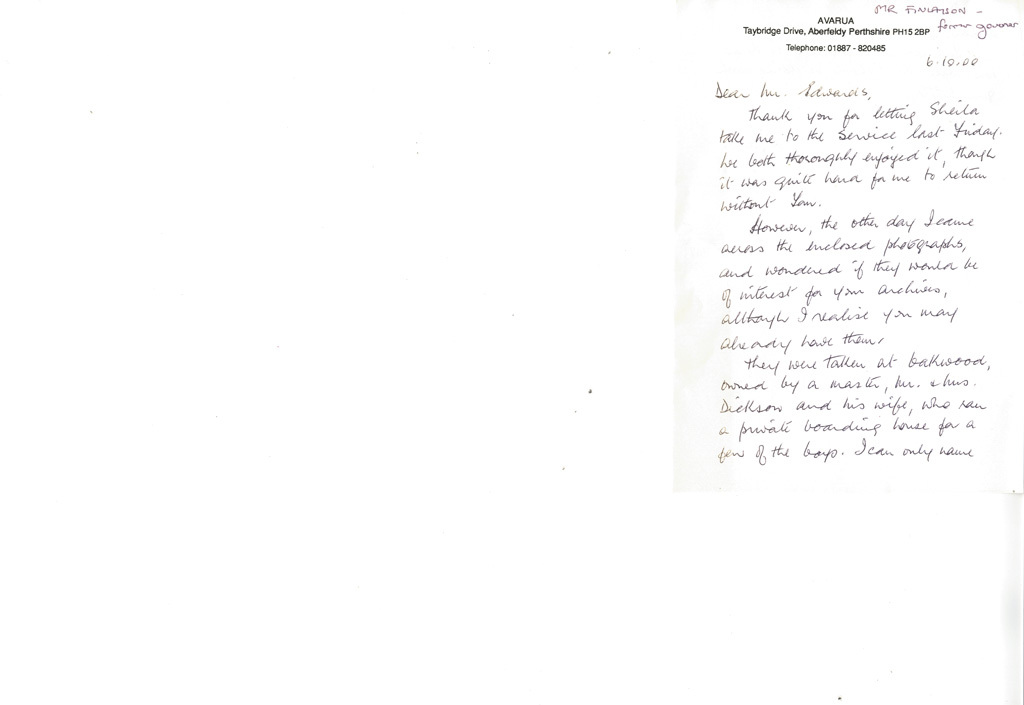 MR FINLAYSON -
former governor
AVARUA
Taybridge Drive, Aberfeldy Perthshire PH15 2BP
Telephone: 01887 - 820485
6.10.00
Dear Mr. Edwards,
Thank you for letting Sheila
take me to the Service last Friday.
We both thoroughly enjoyed it, though
it was quite hard for me to return
without Ian.
However, the other day I came
across the enclosed photographs,
and wondered if they would be
of interest for your archives,
although I realise you may
already have them.
They were taken at Oakwood,
owned by a master, Mr. & Mrs.
Dickson and his wife, who ran
a private boarding house for a
few of the boys. I can only name